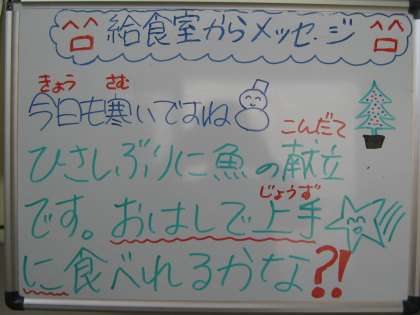 給食室からメッセージ
きょう さむ
今日も寒いですね
こんだて
ひさしぶりに魚の献立
じょうず
です。おはしで上手
に食べれるかな?!